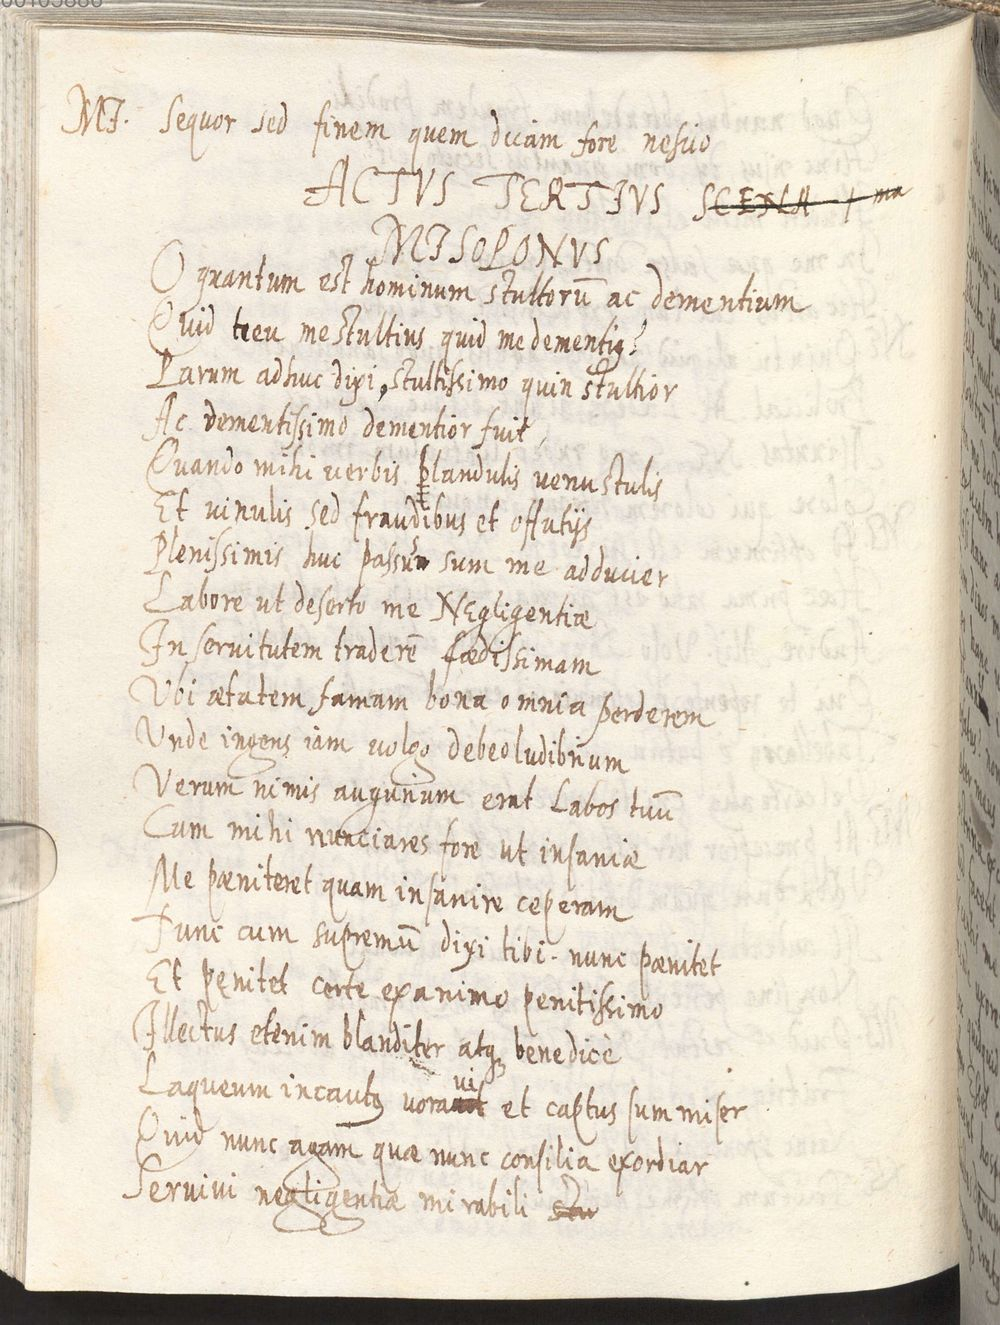 MI. Sequor sed finem quem dicam fore nescio
ACTVS TERTIVS SCENA 1 ma
MISOPONVS
O quantum est hominum stultorū ac dementium
Quid me stultius quid me dementiꝰ?
Parum adhuc dixi, stultissimo quin stultior
Ac dementissimo dementior fuit,
Quando mihi verbis blandulis venustulis
Et vinulis sed fraudibus et offutijs
Plenissimis huc passus sum me adducier
Labore ut deserto me Negligentiæ
In servitutem traderē fœdissimam
Vbi ætatem famam bona omnia perderem
Vnde ingens iam volgo debeo ludibrium
Verum nimis augurium erat Labos tuū
Cum mihi nunciares fore ut insaniæ
Me pæniteret quam insanire ceperam
Tunc cum supremū dixi tibi. nunc pænitet
Et pęnitet certe ex animo penitissimo
Illectus etenim blanditer atqꝫ benedicè
Laqueum incautꝰ voravi et captus sum miser
Quid nunc agam quæ nunc consilia exordiar
Servivi negligentiæ mirabili